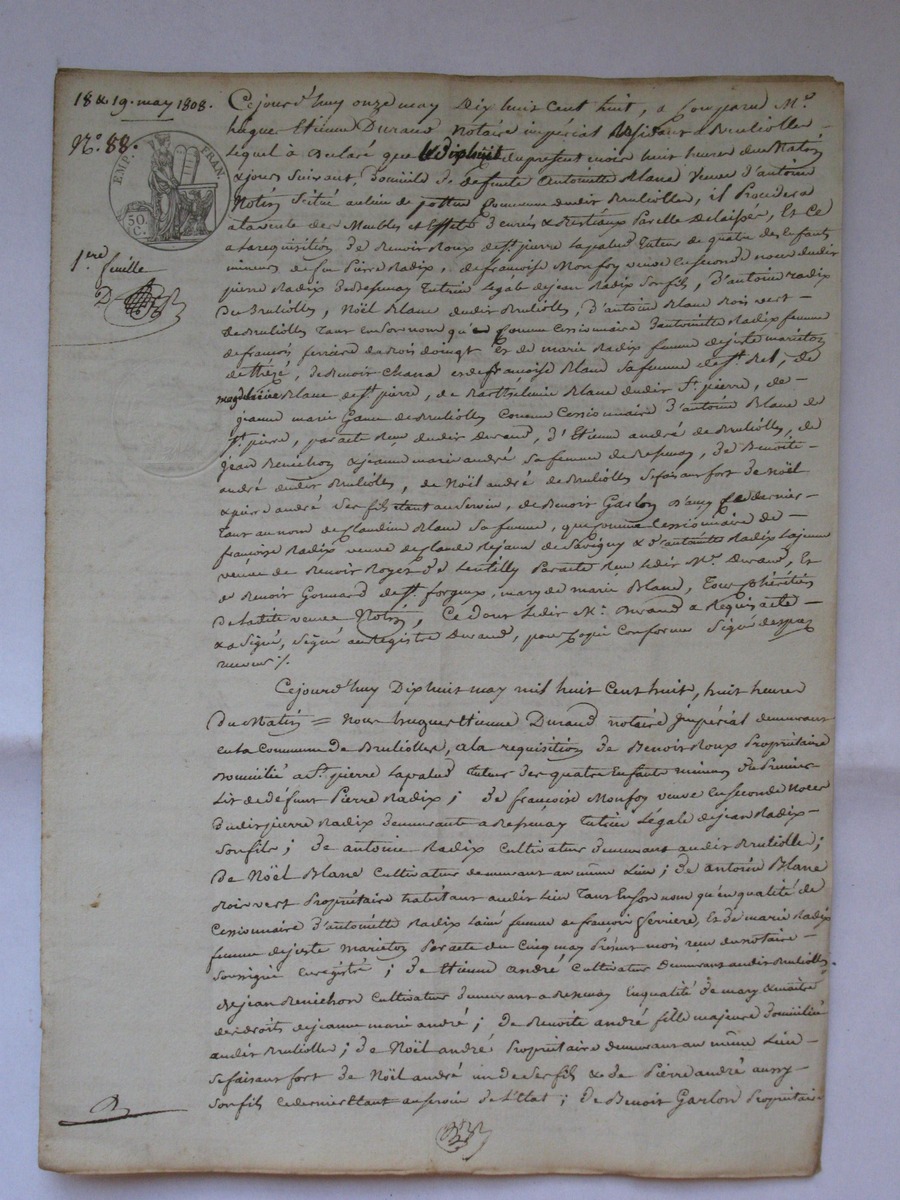 18 & 19. may 1808.
N.° 88.
EMP. FRAN.
50. C.
1.ere feuille
D
Cejourd'huy onze may Dix huit cent huit, a Comparu M.e
hugue Etienne Durand Notaire impérial Résidant a Brullolles
Lequel à Declaré que Le dixhuit du présent mois huit heures du Matin
& jours suivant, Domicile de defunte Antoinette Blanc Veuve d'antoine
Notin situé au lieu de pottu Commune dudit Brullolles, il Procedera
a la vente des Meubles et Effets Denrés & Bestiaux Par elle Delaissés, Et Ce
a La requisition de Benoit Roux de S.t pierre Lapalud Tuteur de quatre des Enfants
mineurs de feu Pierre Radix, de françoise Monfoy veuve En seconde noces dudit
pierre Radix de Bessenay Tutrice Legale de jean Radix Son fils, D'antoine radix
De Brullolles, Noël Blanc dudit Brullolles, D'antoine Blanc Bois vert
de Brullolles Tant En son nom qu'en Comme Cessionnaire d'antoinette Radix femme
de françois ferriere du Bois doingt Et de marie Radix femme de juste marieton
de Thezé, de Benoit Chana et de françoise Blanc Sa femme de S.t Bel, de
magdeleine Blanc de S.t pierre, de Barthelemie Blanc dudit S.t pierre, de
jeanne marie Blanc de Brullolles Comme Cessionnaire D'antoine Blanc de
S.t pierre, par acte Reçu dudit durand, D'Etienne andré de Brullolles, de
jean Benichon & jeanne marie andré sa femme de Bessenay, de Benoite
andré dudit Brullolles, de Noël andré de Brullolles se faisant fort de noël
& pierre andré Ses fils Etant au Service, de Benoit Garlon
Tant au nom de Claudine Blanc Sa femme, que Comme Cessionnaire de
françoise Radix veuve de Claude Rejanu de Savigny & d'antoinette Radix La jeune
veuve de Benoit Roger de Lentilly Par acte Reçu Ledit M.e Durand, Et
de Benoit Gonnard de S.t forgeux, mary de marie Blanc, Tous Cohéritiers
De La dite veuve Notin, Ce Dont Ledit M.e Durand a Requis acte
& a Signé, Signé au registre Durand, pour Copie Conforme Signé
receveur ./.
Cejourd'huy Dix huit may mil huit Cent huit, huit heures
Du Matin = Nous hugues Etienne Durand notaire Impérial demeurant
en La Commune de Brullolles, a La requisition de Benoit Roux Propriétaire
Domicilié a S.t pierre Lapalud Tuteur des quatre Enfants mineurs du Premier
Lit de défunt Pierre Radix; de françoise Monfoy veuve En seconde Noces
Dudit pierre Radix demeurante a Bessenay Tutrice Légale de jean Radix
Son fils; de antoine Radix Cultivateur demeurant audit Brullolles;
De Noël Blanc Cultivateur demeurant au même Lieu; de antoine Blanc
Bois vert Propriétaire habitant audit Lieu Tant En son nom qu'en qualité de
Cessionnaire D'antoinette Radix L'ainé femme de françois ferriere, Et de marie Radix
femme de juste Marieton Par acte du Cinq may Présent mois reçu du notaire
Soussigné Enregistré; de Etienne andré Cultivateur Demeurant audit Brullolles
de jean Benichon Cultivateur demeurant a Bessenay En qualité de mary & maître
des droits de jeanne marie andré; de Benoite andré fille majeure domiciliée
audit Brullolles; de Noël andré Propriétaire demeurant au même Lieu
se faisant fort de Noël andré un de Ses fils & de Pierre andré aussy
Son fils Ce dernier Etant au Service de L'Etat; de Benoit Garlon Propriétaire